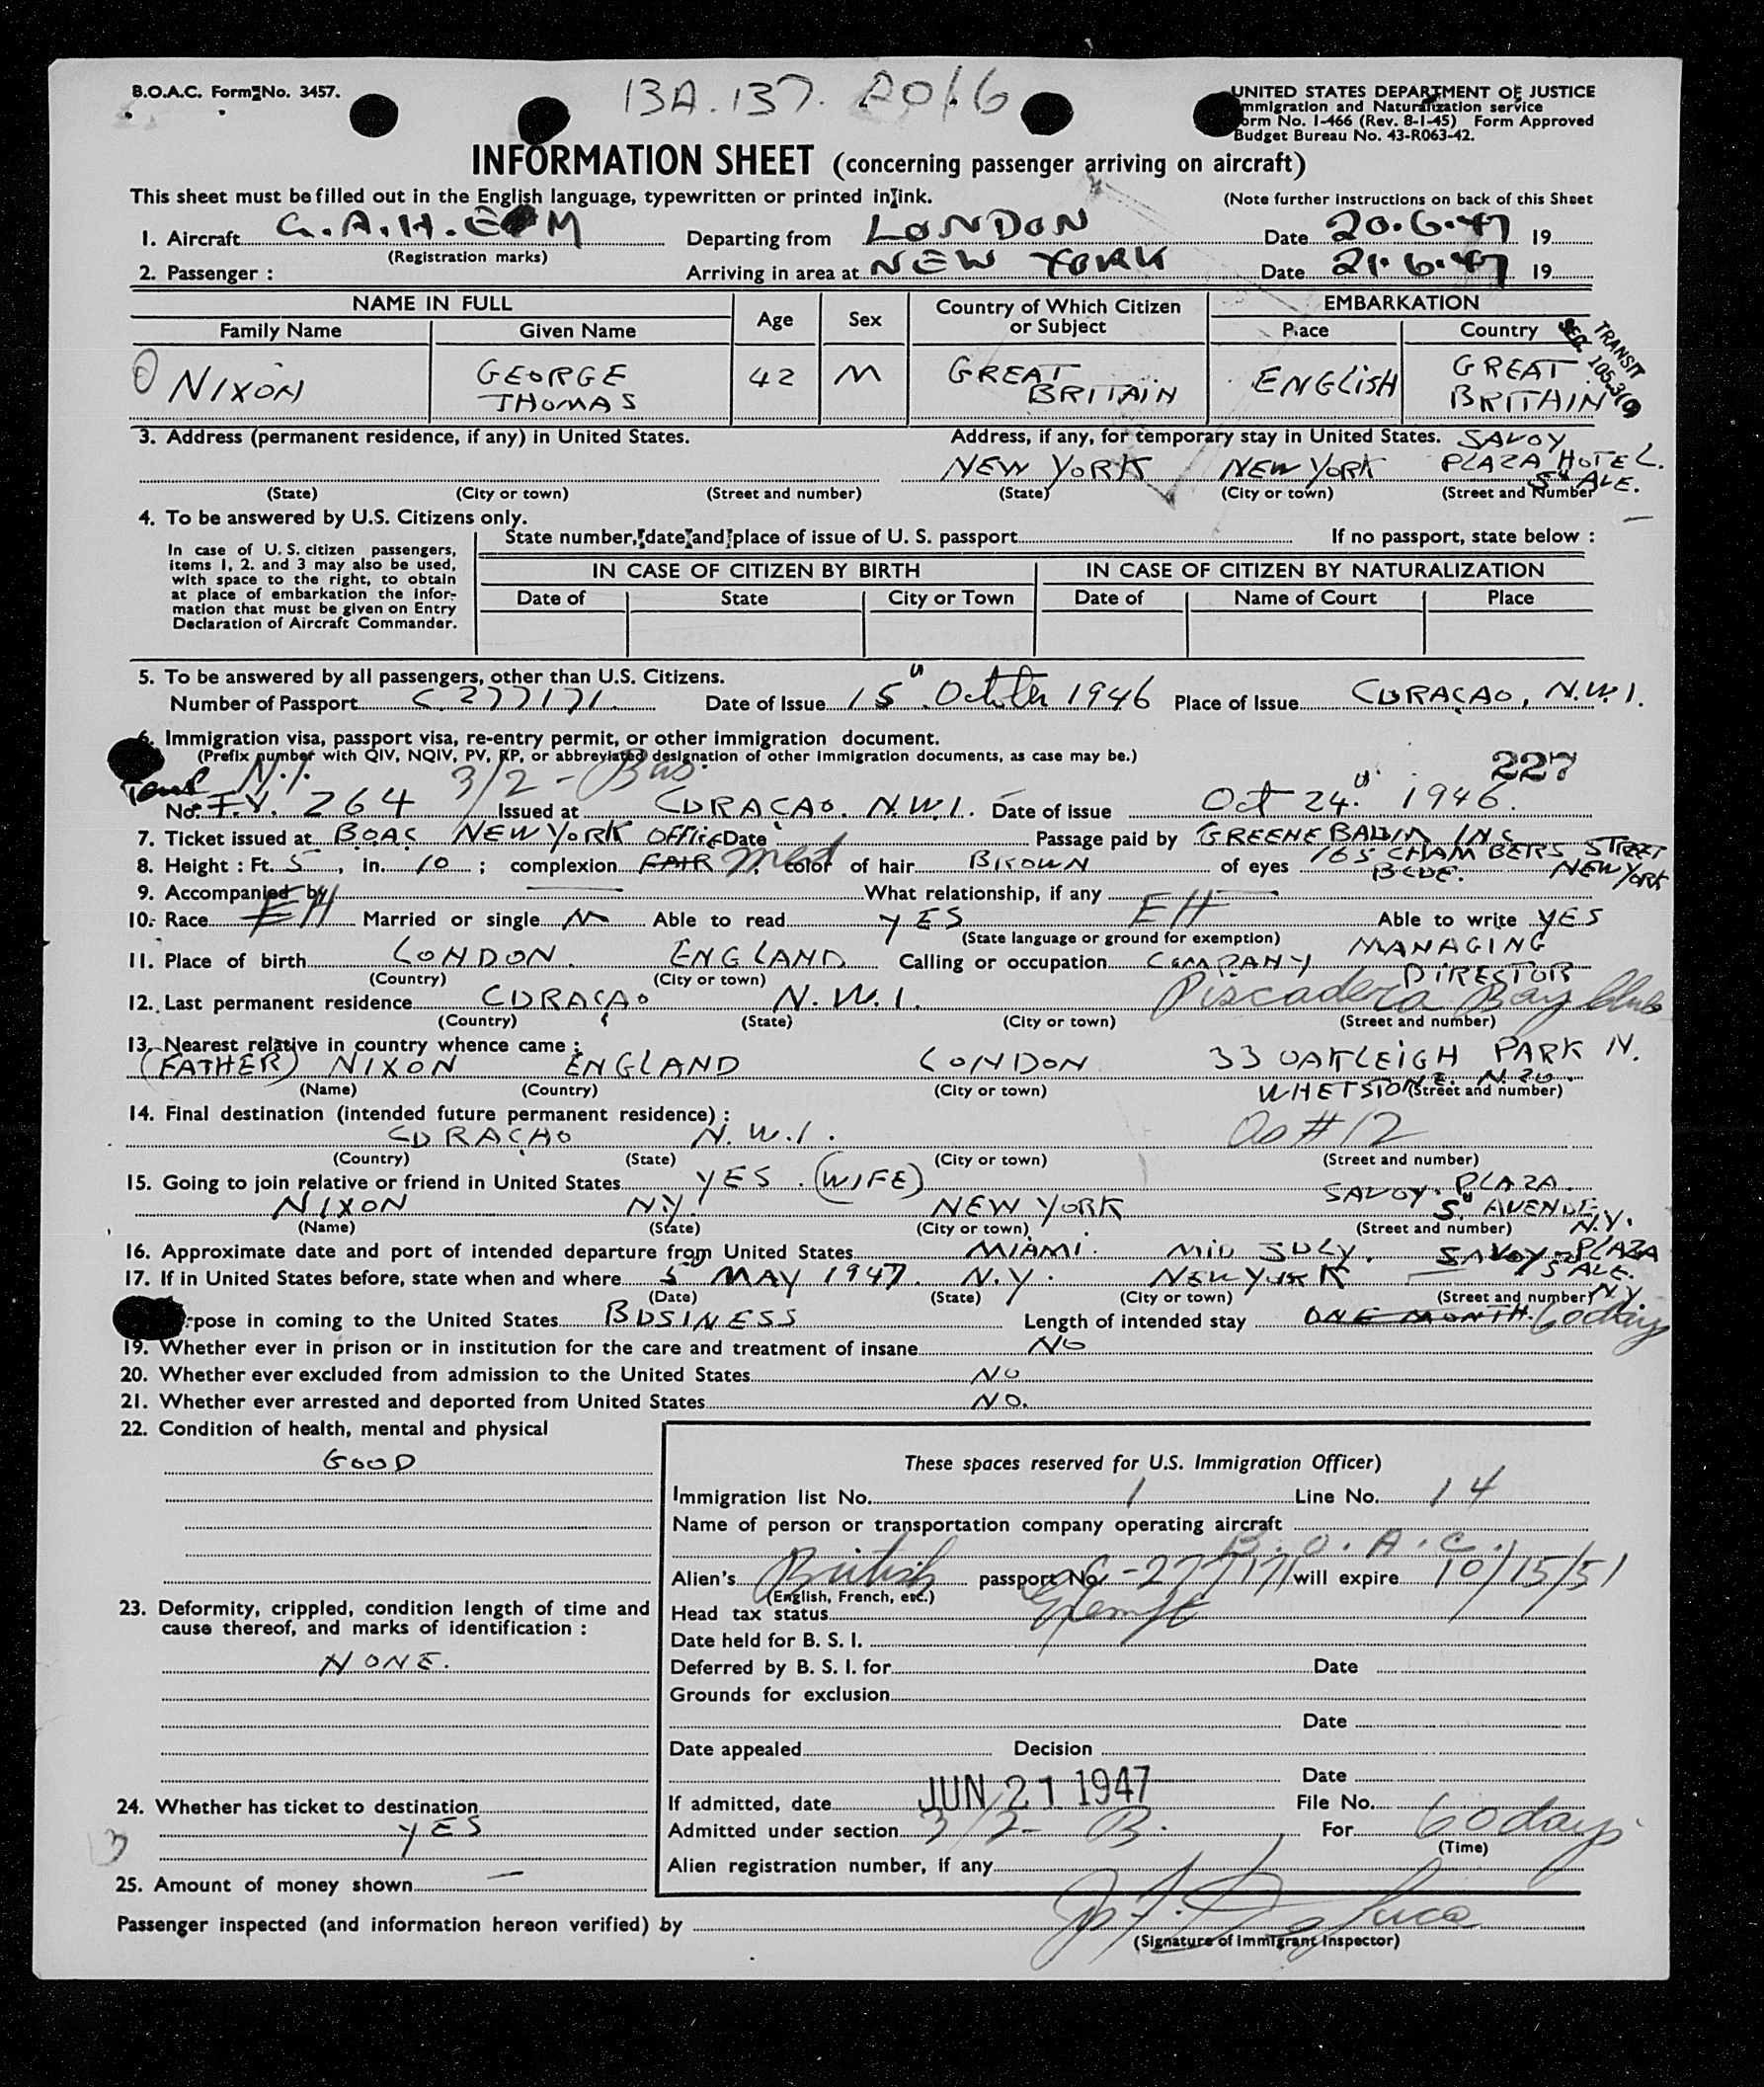 B.O.A.C. Form No. 3457.
13A.137. 2016
UNITED STATES DEPARTMENT OF JUSTICE
Immigration and Naturalization service
Form No. I-466 (Rev. 8-1-45) Form Approved
Budget Bureau No. 43-R063-42.
INFORMATION SHEET (concerning passenger arriving on aircraft)
This sheet must be filled out in the English language, typewritten or printed in ink. (Note further instructions on back of this Sheet
1. Aircraft G.A.H.E.M Departing from LONDON Date 20.6.47 19
(Registration marks)
2. Passenger : Arriving in area at NEW YORK Date 21.6.47 19
NAME IN FULL Age Sex Country of Which Citizen or Subject EMBARKATION
Family Name Given Name Place Country
TRANSIT
SEC. 105.3(0)
NIXON GEORGE THOMAS 42 M GREAT BRITAIN ENGLISH GREAT BRITAIN
3. Address (permanent residence, if any) in United States. Address, if any, for temporary stay in United States. SAVOY
NEW YORK NEW YORK PLAZA HOTEL.
5th AVE.
(State) (City or town) (Street and number) (State) (City or town) (Street and Number
4. To be answered by U.S. Citizens only.
State number, date and place of issue of U. S. passport If no passport, state below :
In case of U. S. citizen passengers,
items 1, 2. and 3 may also be used,
with space to the right, to obtain
at place of embarkation the infor-
mation that must be given on Entry
Declaration of Aircraft Commander.
IN CASE OF CITIZEN BY BIRTH IN CASE OF CITIZEN BY NATURALIZATION
Date of State City or Town Date of Name of Court Place
5. To be answered by all passengers, other than U.S. Citizens.
Number of Passport C 277171. Date of Issue 15th October 1946 Place of Issue CURAÇAO, N.W.I.
6. Immigration visa, passport visa, re-entry permit, or other immigration document.
(Prefix number with QIV, NQIV, PV, RP, or abbreviated designation of other immigration documents, as case may be.)
N.I. 3/2 - Bus. 227
No. T.V. 264 Issued at CURAÇAO. N.W.I. Date of issue Oct 24th 1946.
7. Ticket issued at BOAC NEW YORK OFFICE Date Passage paid by GREENEBAUM INS
165 CHAMBERS STREET
NEW YORK
8. Height : Ft. 5, in. 10 ; complexion FAIR med color of hair BROWN of eyes BLUE.
9. Accompanied by What relationship, if any
10. Race EH Married or single M Able to read YES EH Able to write YES
(State language or ground for exemption)
11. Place of birth LONDON. ENGLAND Calling or occupation COMPANY MANAGING DIRECTOR
(Country) (City or town)
12. Last permanent residence CURAÇAO N.W.I. Piscadera Bay Club
(Country) (State) (City or town) (Street and number)
13. Nearest relative in country whence came :
(FATHER) NIXON ENGLAND LONDON 33 OAKLEIGH PARK N.
WHETSTONE. N.20.
(Name) (Country) (City or town) (Street and number)
14. Final destination (intended future permanent residence) :
CURAÇAO N.W.I. as # 12
(Country) (State) (City or town) (Street and number)
15. Going to join relative or friend in United States YES. (WIFE)
NIXON N.Y. NEW YORK SAVOY. PLAZA.
5th AVENUE.
N.Y.
(Name) (State) (City or town) (Street and number)
16. Approximate date and port of intended departure from United States MIAMI. MID JULY.
SAVOY-PLAZA
17. If in United States before, state when and where 5 MAY 1947. N.Y. NEW YORK 5th AVE.
N.Y.
(Date) (State) (City or town) (Street and number)
rpose in coming to the United States BUSINESS Length of intended stay ONE MONTH. 60 days
19. Whether ever in prison or in institution for the care and treatment of insane NO
20. Whether ever excluded from admission to the United States NO
21. Whether ever arrested and deported from United States NO.
22. Condition of health, mental and physical
GOOD
23. Deformity, crippled, condition length of time and
cause thereof, and marks of identification :
NONE.
24. Whether has ticket to destination
YES
25. Amount of money shown —
These spaces reserved for U.S. Immigration Officer)
Immigration list No. 1 Line No. 14
Name of person or transportation company operating aircraft
B.O.A.C.
Alien's British passport No. C-277171 will expire 10/15/51
(English, French, etc.)
Head tax status Exempt
Date held for B. S. I.
Deferred by B. S. I. for Date
Grounds for exclusion
Date
Date appealed Decision
Date
If admitted, date JUN 21 1947 File No.
Admitted under section 3/2- B. For 60 days
(Time)
Alien registration number, if any
Passenger inspected (and information hereon verified) by
(Signature of Immigrant Inspector)